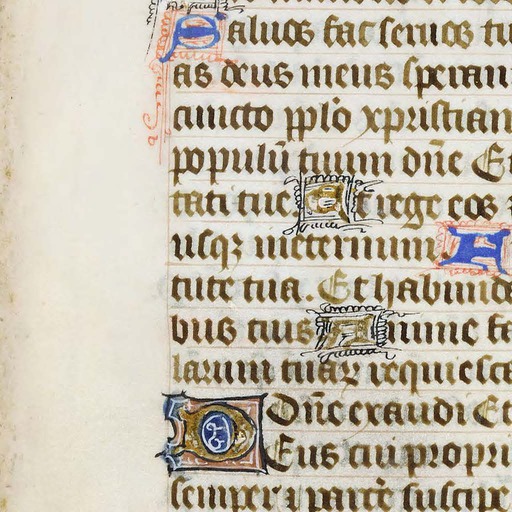 Saluos fac seruos tu
as deus meus speran
cuncto pplo xpristian
populū tuum dn̄e Et
tati tue. Et rege eos ⁊
usqꝫ in eternum A
tute tua. Et habund
bus tuis Anime fa
larum tuaꝝ requiesca
Dn̄e exaudi Et
Deus cui propri
semper ⁊ parcē suscipe